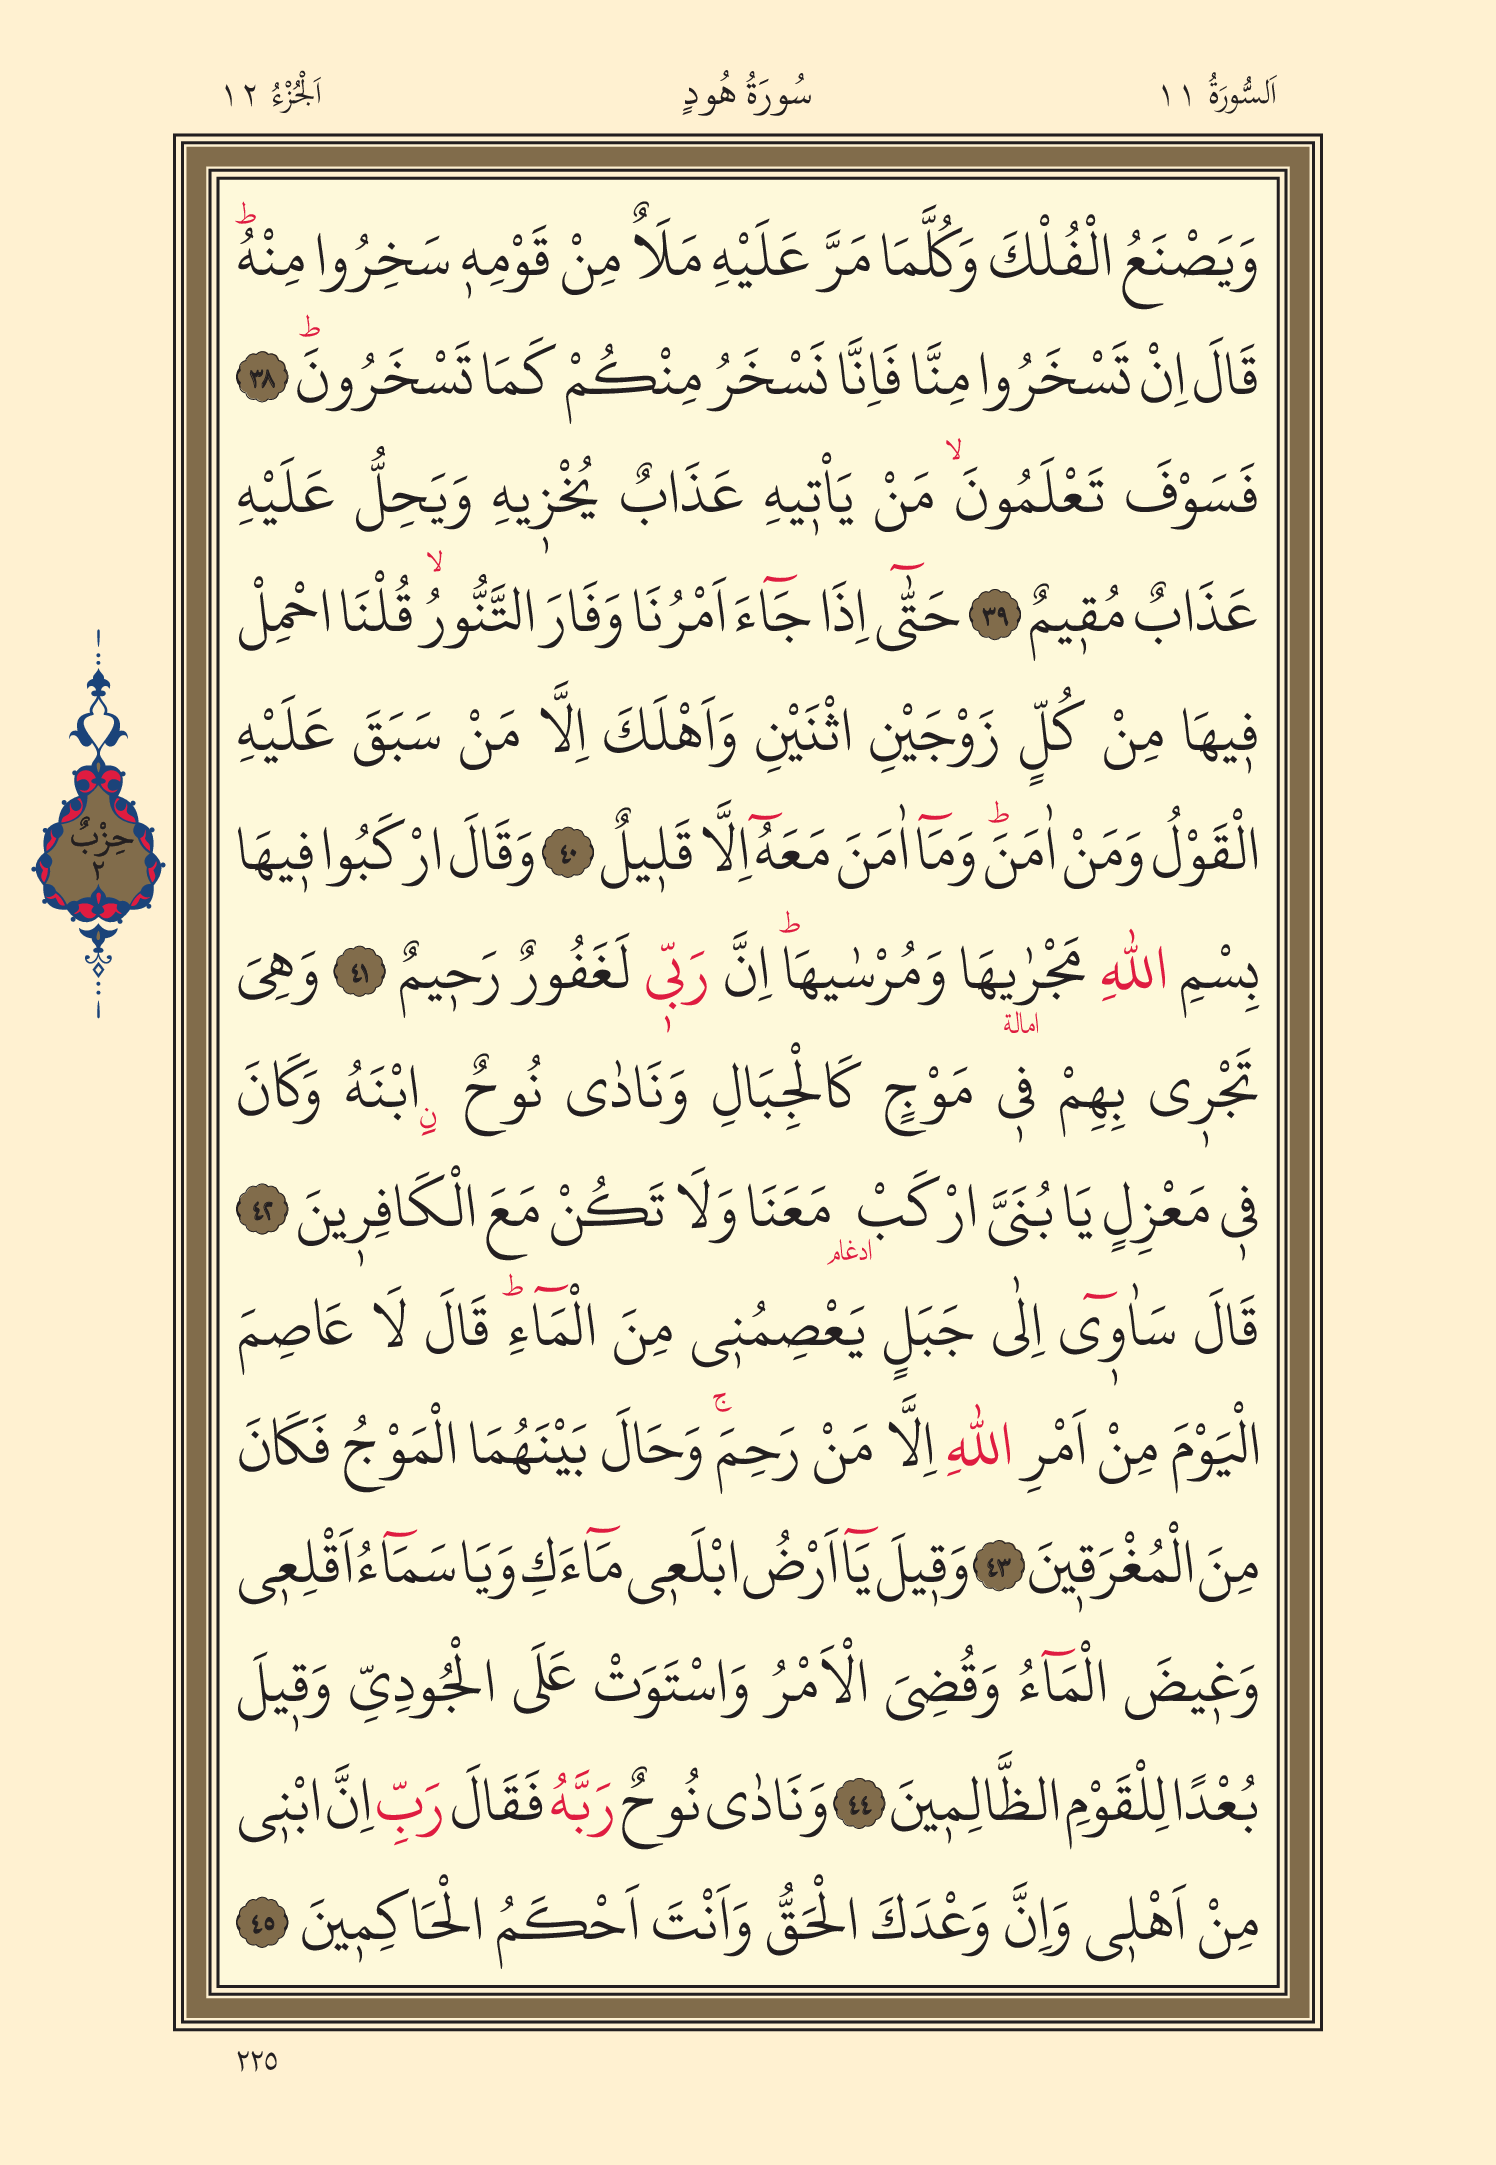 اَلسُّورَةُ ١١
سُورَةُ هُودٍ
اَلْجُزْءُ ١٢
وَيَصْنَعُ الْفُلْكَ وَكُلَّمَا مَرَّ عَلَيْهِ مَلَاٌ مِنْ قَوْمِهٖ سَخِرُوا مِنْهُ ط
قَالَ اِنْ تَسْخَرُوا مِنَّا فَاِنَّا نَسْخَرُ مِنْكُمْ كَمَا تَسْخَرُونَ ط ٣٨
فَسَوْفَ تَعْلَمُونَ لا مَنْ يَاْتٖيهِ عَذَابٌ يُخْزٖيهِ وَيَحِلُّ عَلَيْهِ
عَذَابٌ مُقٖيمٌ ٣٩ حَتّٰٓى اِذَا جَٓاءَ اَمْرُنَا وَفَارَ التَّنُّورُ لا قُلْنَا احْمِلْ
فٖيهَا مِنْ كُلٍّ زَوْجَيْنِ اثْنَيْنِ وَاَهْلَكَ اِلَّا مَنْ سَبَقَ عَلَيْهِ
الْقَوْلُ وَمَنْ اٰمَنَ ط وَمَٓا اٰمَنَ مَعَهُٓ اِلَّا قَلٖيلٌ ٤٠ وَقَالَ ارْكَبُوا فٖيهَا
بِسْمِ اللّٰهِ مَجْرٰيهَا وَمُرْسٰيهَا ط اِنَّ رَبّٖى لَغَفُورٌ رَحٖيمٌ ٤١ وَهِىَ
امالة
تَجْرٖى بِهِمْ فٖى مَوْجٍ كَالْجِبَالِ وَنَادٰى نُوحٌ نِ ابْنَهُ وَكَانَ
فٖى مَعْزِلٍ يَا بُنَىَّ ارْكَبْ مَعَنَا وَلَا تَكُنْ مَعَ الْكَافِرٖينَ ٤٢
ادغام
قَالَ سَاٰوٖٓى اِلٰى جَبَلٍ يَعْصِمُنٖى مِنَ الْمَٓاءِ ط قَالَ لَا عَاصِمَ
الْيَوْمَ مِنْ اَمْرِ اللّٰهِ اِلَّا مَنْ رَحِمَ ج وَحَالَ بَيْنَهُمَا الْمَوْجُ فَكَانَ
مِنَ الْمُغْرَقٖينَ ٤٣ وَقٖيلَ يَٓا اَرْضُ ابْلَعٖى مَٓاءَكِ وَيَا سَمَٓاءُ اَقْلِعٖى
وَغٖيضَ الْمَٓاءُ وَقُضِىَ الْاَمْرُ وَاسْتَوَتْ عَلَى الْجُودِىِّ وَقٖيلَ
بُعْدًا لِلْقَوْمِ الظَّالِمٖينَ ٤٤ وَنَادٰى نُوحٌ رَبَّهُ فَقَالَ رَبِّ اِنَّ ابْنٖى
مِنْ اَهْلٖى وَاِنَّ وَعْدَكَ الْحَقُّ وَاَنْتَ اَحْكَمُ الْحَاكِمٖينَ ٤٥
حِزْبٌ
٢
٢٢٥